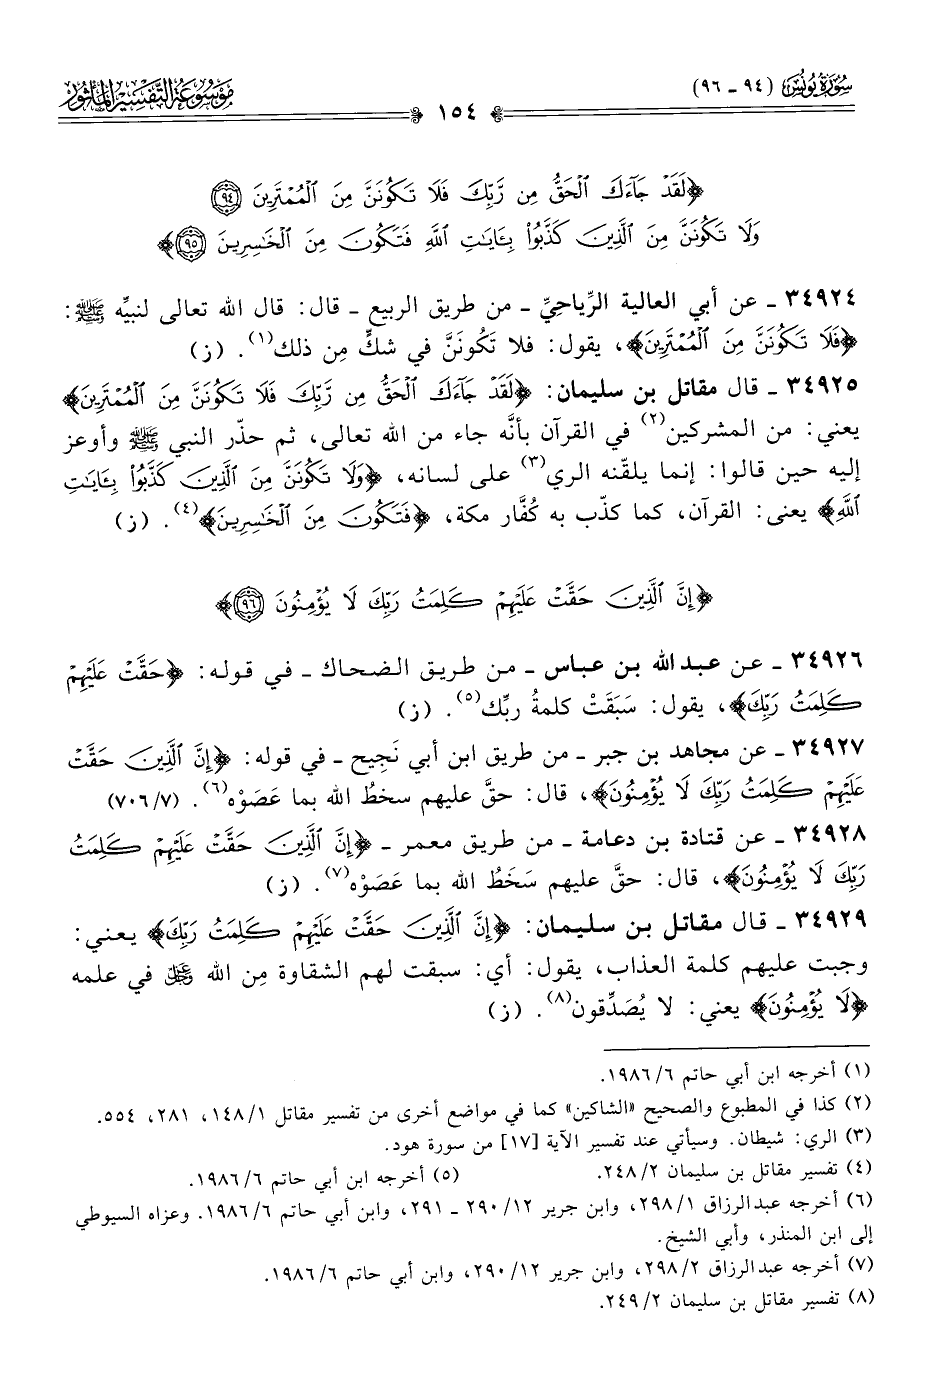 سورة يونس (٩٤ - ٩٦)
١٥٤
موسوعة التفسير المأثور
﴿لَقَدْ جَآءَكَ ٱلْحَقُّ مِن رَّبِّكَ فَلَا تَكُونَنَّ مِنَ ٱلْمُمْتَرِينَ ٩٤
وَلَا تَكُونَنَّ مِنَ ٱلَّذِينَ كَذَّبُوا۟ بِـَٔايَـٰتِ ٱللَّهِ فَتَكُونَ مِنَ ٱلْخَـٰسِرِينَ ٩٥﴾
٣٤٩٢٤ - عن أبي العالية الرِّياحيِّ - من طريق الربيع - قال: قال الله تعالى لنبيِّه ﷺ:
﴿فَلَا تَكُونَنَّ مِنَ ٱلْمُمْتَرِينَ﴾، يقول: فلا تكُونَنَّ في شكٍّ مِن ذلك(١). (ز)
٣٤٩٢٥ - قال مقاتل بن سليمان: ﴿لَقَدْ جَآءَكَ ٱلْحَقُّ مِن رَّبِّكَ فَلَا تَكُونَنَّ مِنَ ٱلْمُمْتَرِينَ﴾
يعني: من المشركين(٢) في القرآن بأنَّه جاء من الله تعالى، ثم حذّر النبي ﷺ وأوعز
إليه حين قالوا: إنما يلقّنه الري(٣) على لسانه، ﴿وَلَا تَكُونَنَّ مِنَ ٱلَّذِينَ كَذَّبُوا۟ بِـَٔايَـٰتِ
ٱللَّهِ﴾ يعني: القرآن، كما كذّب به كُفَّار مكة، ﴿فَتَكُونَ مِنَ ٱلْخَـٰسِرِينَ﴾(٤). (ز)
﴿إِنَّ ٱلَّذِينَ حَقَّتْ عَلَيْهِمْ كَلِمَتُ رَبِّكَ لَا يُؤْمِنُونَ ٩٦﴾
٣٤٩٢٦ - عن عبد الله بن عباس - من طريق الضحاك - في قوله: ﴿حَقَّتْ عَلَيْهِمْ
كَلِمَتُ رَبِّكَ﴾، يقول: سَبَقَتْ كلمةُ ربِّك(٥). (ز)
٣٤٩٢٧ - عن مجاهد بن جبر - من طريق ابن أبي نَجِيح - في قوله: ﴿إِنَّ ٱلَّذِينَ حَقَّتْ
عَلَيْهِمْ كَلِمَتُ رَبِّكَ لَا يُؤْمِنُونَ﴾، قال: حقَّ عليهم سخطُ الله بما عَصَوْه(٦). (٧/ ٧٠٦)
٣٤٩٢٨ - عن قتادة بن دعامة - من طريق معمر - ﴿إِنَّ ٱلَّذِينَ حَقَّتْ عَلَيْهِمْ كَلِمَتُ
رَبِّكَ لَا يُؤْمِنُونَ﴾، قال: حقَّ عليهم سَخَطُ الله بما عَصَوْه(٧). (ز)
٣٤٩٢٩ - قال مقاتل بن سليمان: ﴿إِنَّ ٱلَّذِينَ حَقَّتْ عَلَيْهِمْ كَلِمَتُ رَبِّكَ﴾ يعني:
وجبت عليهم كلمة العذاب، يقول: أي: سبقت لهم الشقاوة مِن الله ﷿ في علمه
﴿لَا يُؤْمِنُونَ﴾ يعني: لا يُصَدِّقون(٨). (ز)
(١) أخرجه ابن أبي حاتم ٦/ ١٩٨٦.
(٢) كذا في المطبوع والصحيح «الشاكين» كما في مواضع أخرى من تفسير مقاتل ١/ ١٤٨، ٢٨١، ٥٥٤.
(٣) الري: شيطان. وسيأتي عند تفسير الآية [١٧] من سورة هود.
(٤) تفسير مقاتل بن سليمان ٢/ ٢٤٨. (٥) أخرجه ابن أبي حاتم ٦/ ١٩٨٦.
(٦) أخرجه عبدالرزاق ١/ ٢٩٨، وابن جرير ١٢/ ٢٩٠ - ٢٩١، وابن أبي حاتم ٦/ ١٩٨٦. وعزاه السيوطي
إلى ابن المنذر، وأبي الشيخ.
(٧) أخرجه عبدالرزاق ٢/ ٢٩٨، وابن جرير ١٢/ ٢٩٠، وابن أبي حاتم ٦/ ١٩٨٦.
(٨) تفسير مقاتل بن سليمان ٢/ ٢٤٩.